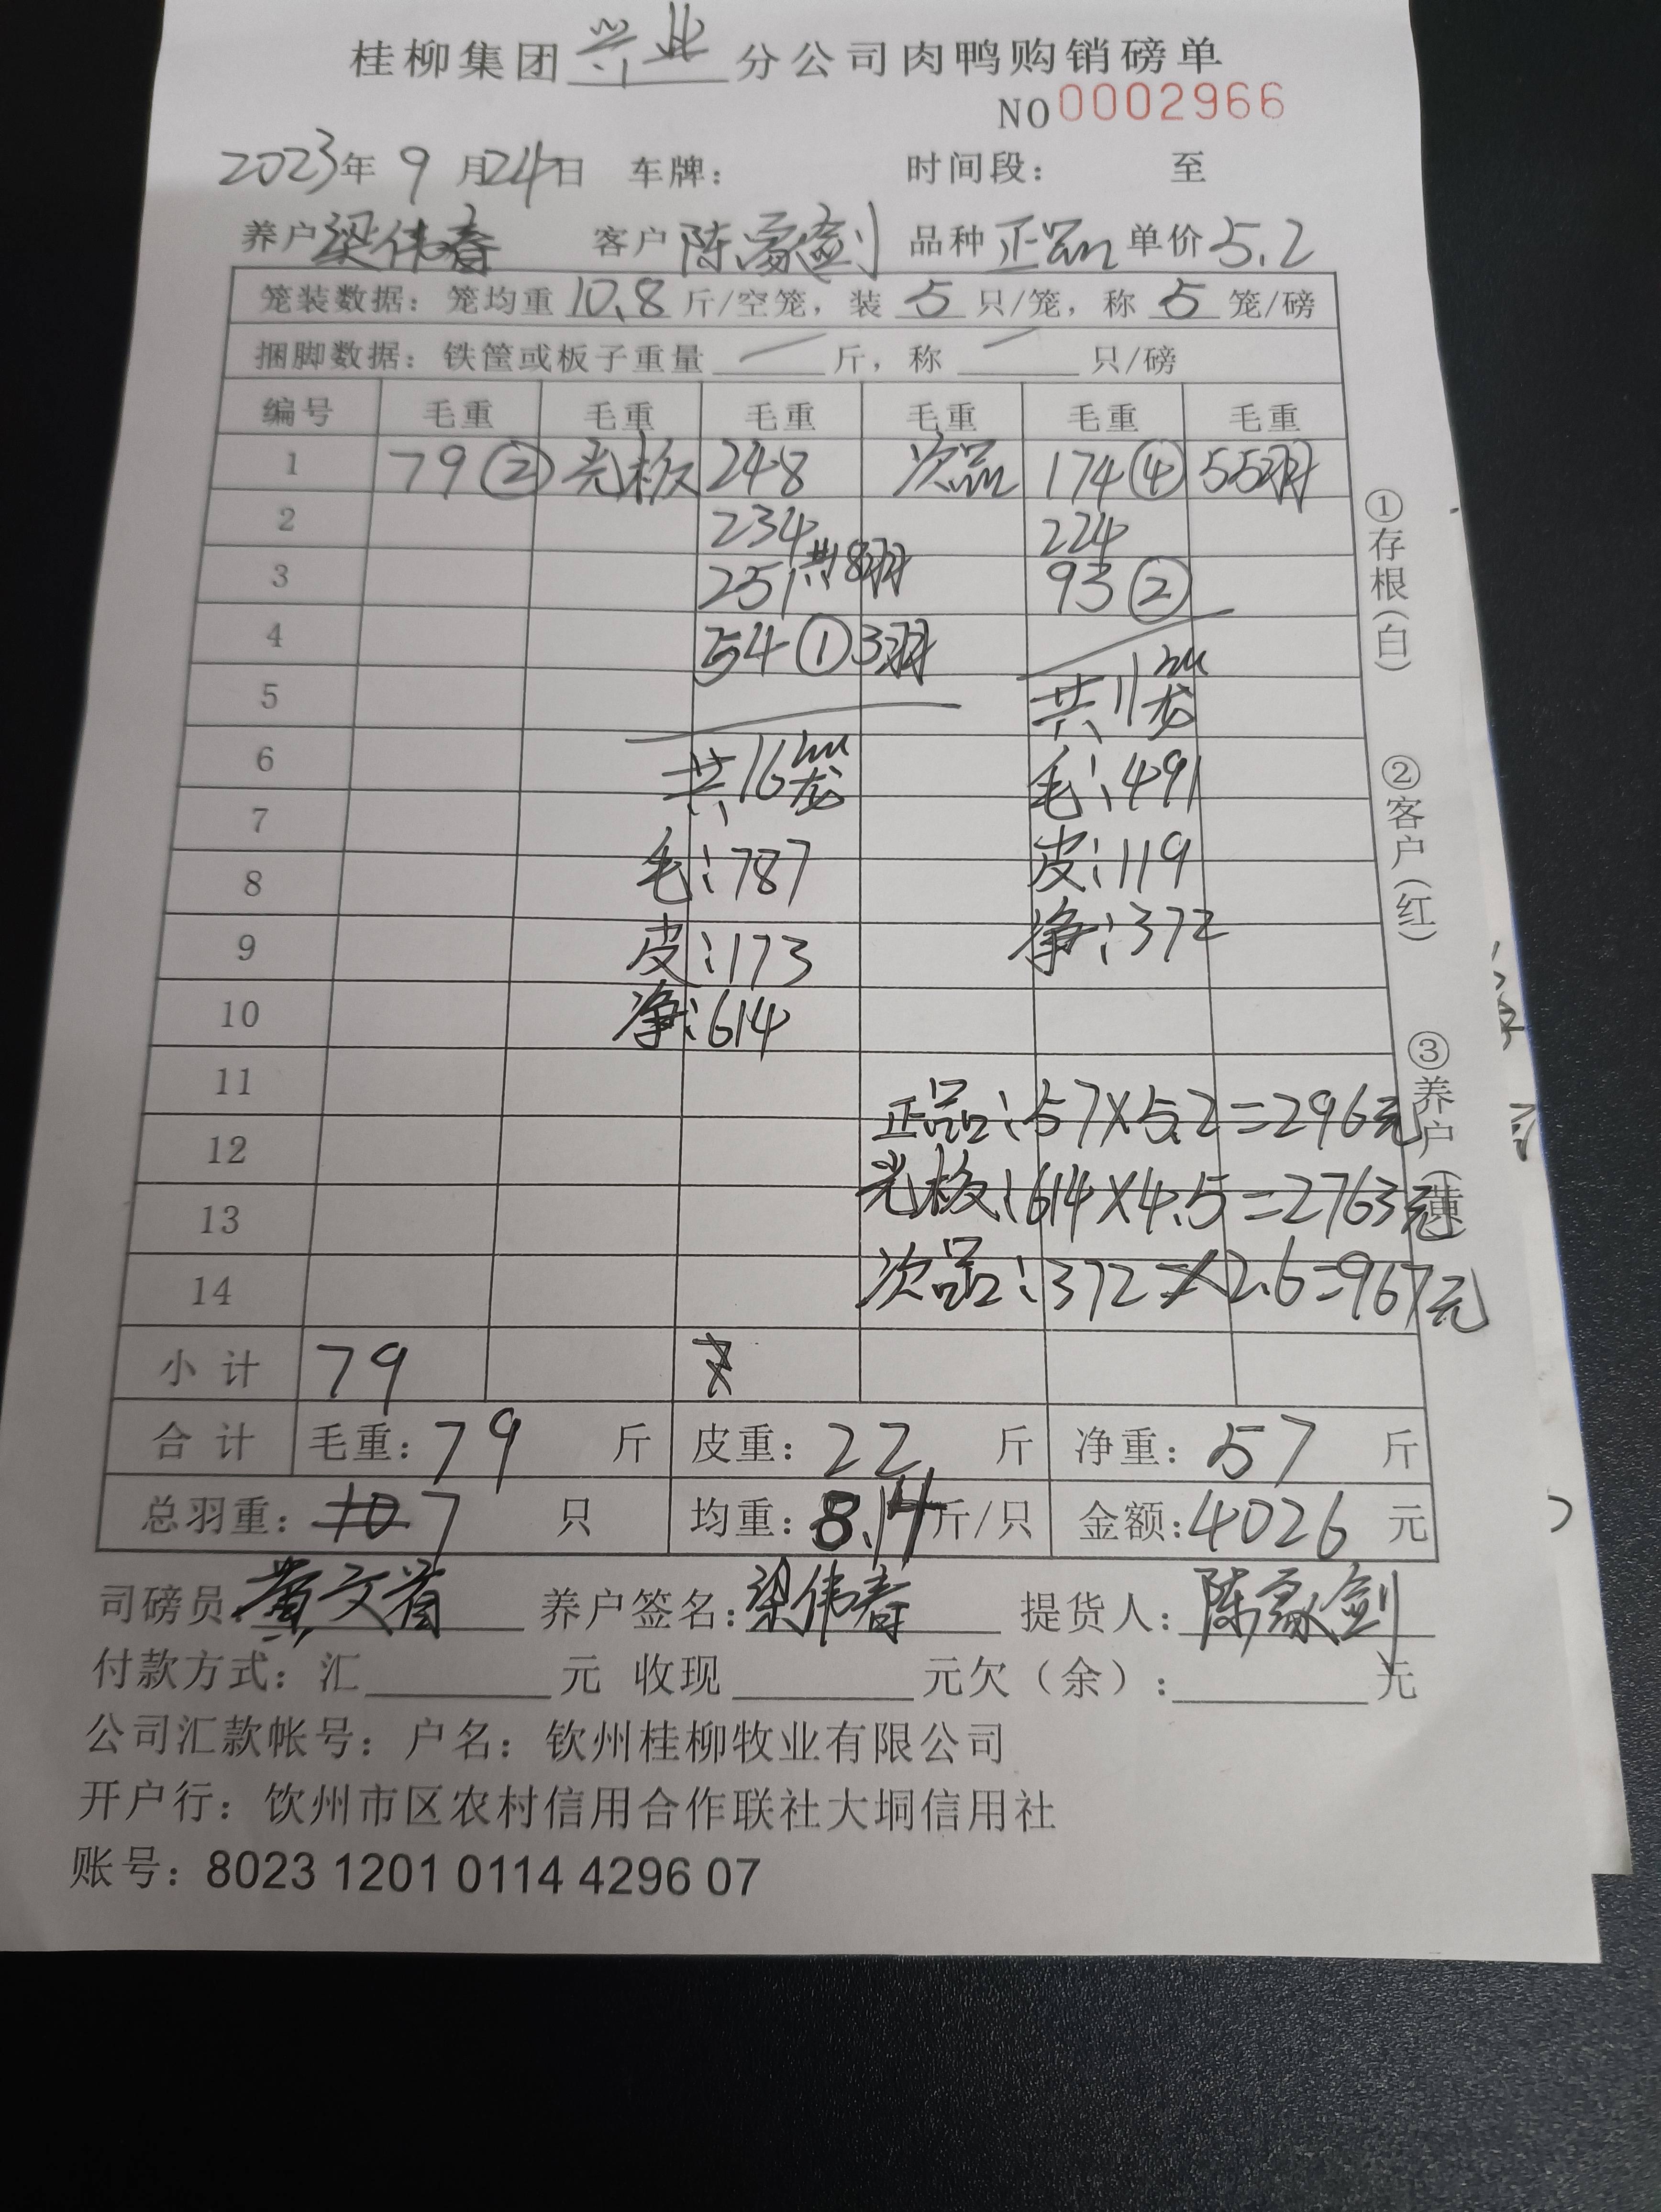 桂柳集团兴业分公司肉鸭购销磅单
NO 0002966
2023年9月24日 车牌： 时间段： 至
养户 梁伟春 客户 陈家剑 品种 正品 单价 5.2
笼装数据：笼均重 10.8 斤/空笼，装 5 只/笼，称 5 笼/磅
捆脚数据：铁筐或板子重量 — 斤，称 — 只/磅
编号 毛重 毛重 毛重 毛重 毛重 毛重
1 79② 光板 248 次品 174④ 55羽
2 234 224
3 251 共83羽 93②
4 54① 3羽
5 共11笼
6 共16笼 毛:491
7
8 毛:787 皮:119
9 皮:173 净:372
10 净:614
11 正品:57×5.2=296元
12 光板:614×4.5=2763元
13
14 次品:372×2.6=967元
小计 79
合计 毛重：79 斤 皮重：22 斤 净重：57 斤
总羽重：7 只 均重：8.14斤/只 金额：4026 元
司磅员 黄文 养户签名：梁伟春 提货人：陈家剑
付款方式：汇 元 收现 元欠（余）： 元
公司汇款帐号：户名：钦州桂柳牧业有限公司
开户行：饮州市区农村信用合作联社大垌信用社
账号：8023 1201 0114 4296 07
①存根（白）
②客户（红）
③养户（蓝）